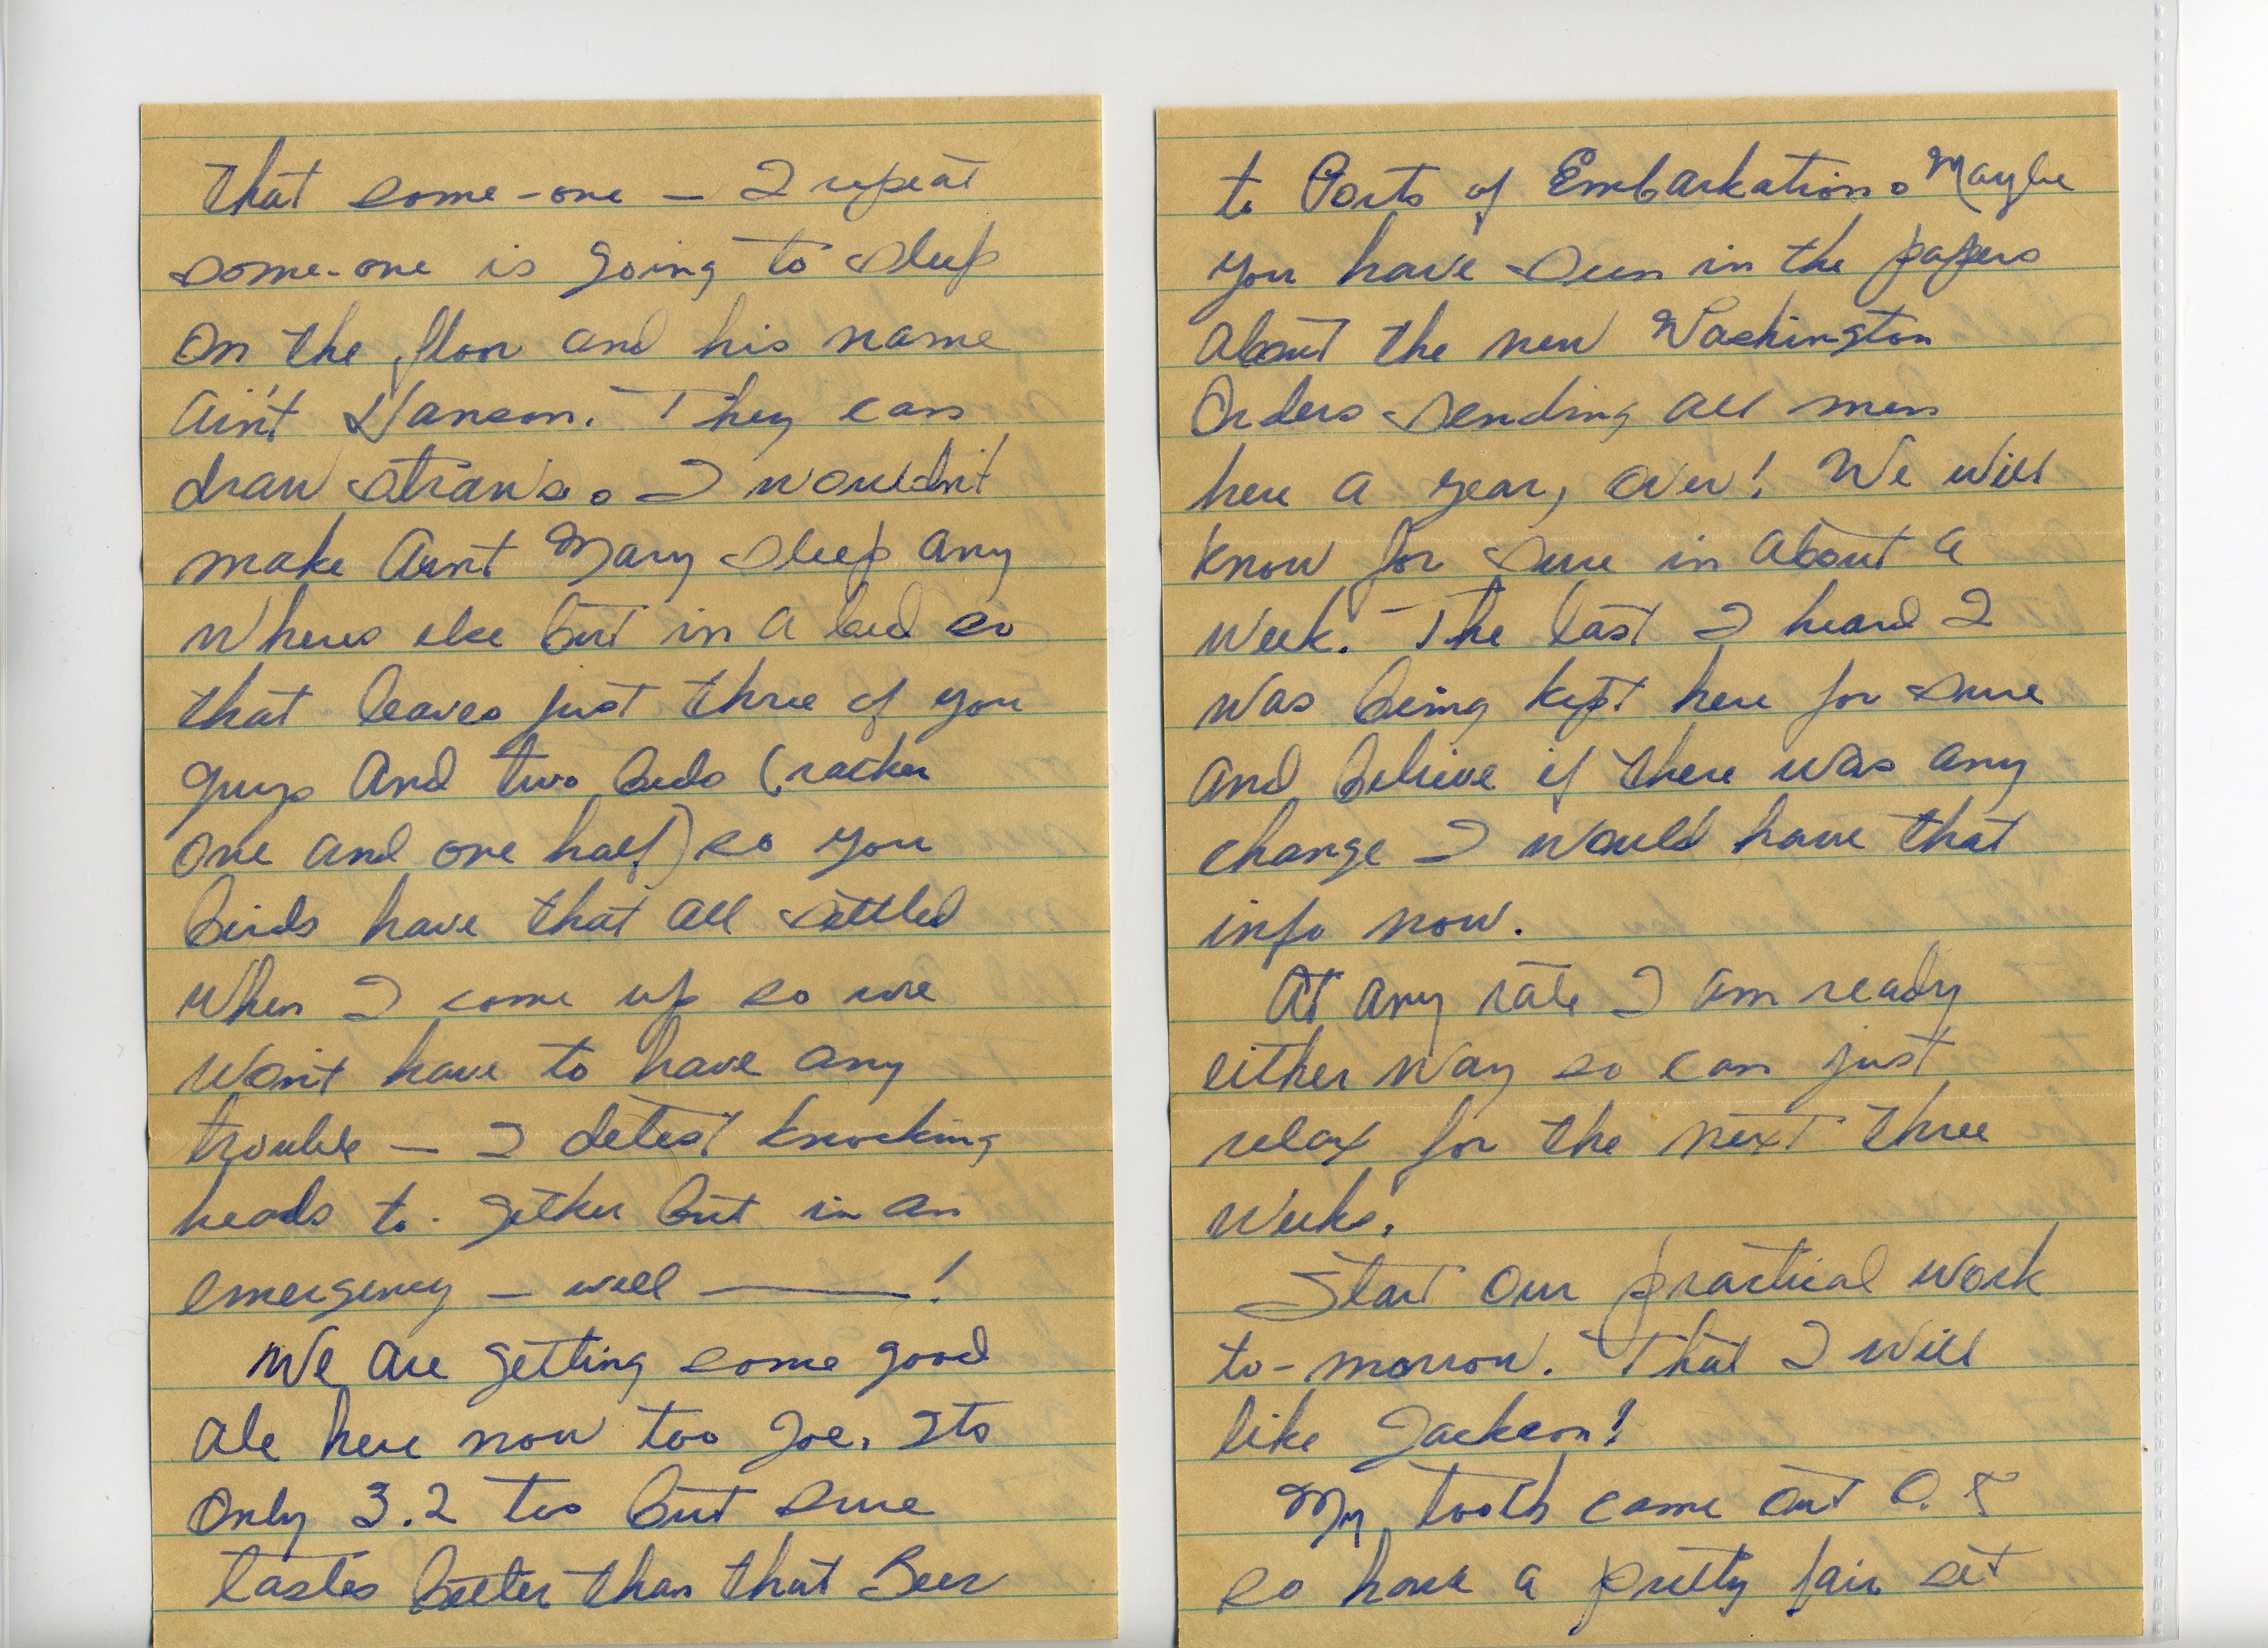 that some-one — I repeat
some-one is going to sleep
on the floor and his name
ain't Hanson. They can
draw straws. I wouldn't
make Aunt Mary sleep any
wheres else but in a bed so
that leaves just three of you
guys and two beds (rather
one and one half) so you
birds have that all settled
when I come up so we
won't have to have any
trouble — I detest knocking
heads to-gether but in an
emergency — well ——— !
We are getting some good
ale here now too Joe. Its
only 3.2 too but sure
tastes better than that Beer
to Ports of Embarkation. Maybe
you have seen in the papers
about the new Washington
Orders sending all men
here a year, over! We will
know for sure in about a
week. The last I heard I
was being kept here for sure
and believe if there was any
change I would have that
info now.
At any rate I am ready
either way so can just
relax for the next three
weeks.
Start our practical work
to-morrow. That I will
like Jackson!
My tooth came out O.K
so have a pretty fair set